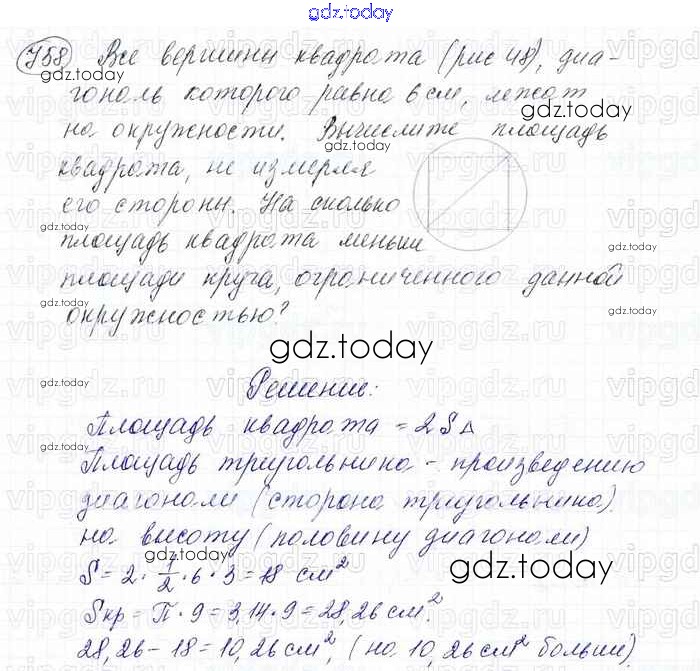 gdz.today
758 Все вершины квадрата (рис 48), диа-
гональ которого равна 6 см, лежат
на окружности. Вычислите площадь
квадрата, не измеряя
его стороны. На сколько
площадь квадрата меньше
площади круга, ограниченного данной
окружностью?
gdz.today
Решение:
Площадь квадрата = 2 S Δ
Площадь треугольника - произведению
диагонали (сторона треугольника)
на высоту (половину диагонали)
S = 2 · 1/2 · 6 · 3 = 18 см²
gdz.today
Sкр = П · 9 = 3,14 · 9 = 28,26 см².
28,26 - 18 = 10,26 см², (на 10,26 см² больше)